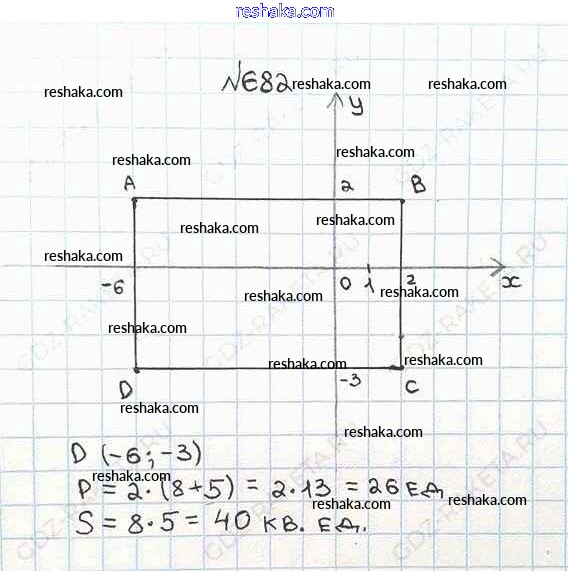 reshaka.com
№682 reshaka.com reshaka.com
reshaka.com
y
reshaka.com reshaka.com
A 2 B
reshaka.com reshaka.com
reshaka.com
-6 0 1 2 x
reshaka.com reshaka.com
reshaka.com
reshaka.com reshaka.com
D -3 C
reshaka.com
reshaka.com
D (-6; -3)
reshaka.com
P = 2·(8+5) = 2·13 = 26 ед
reshaka.com reshaka.com
S = 8·5 = 40 кв. ед.
GDZ-RAKETA.RU